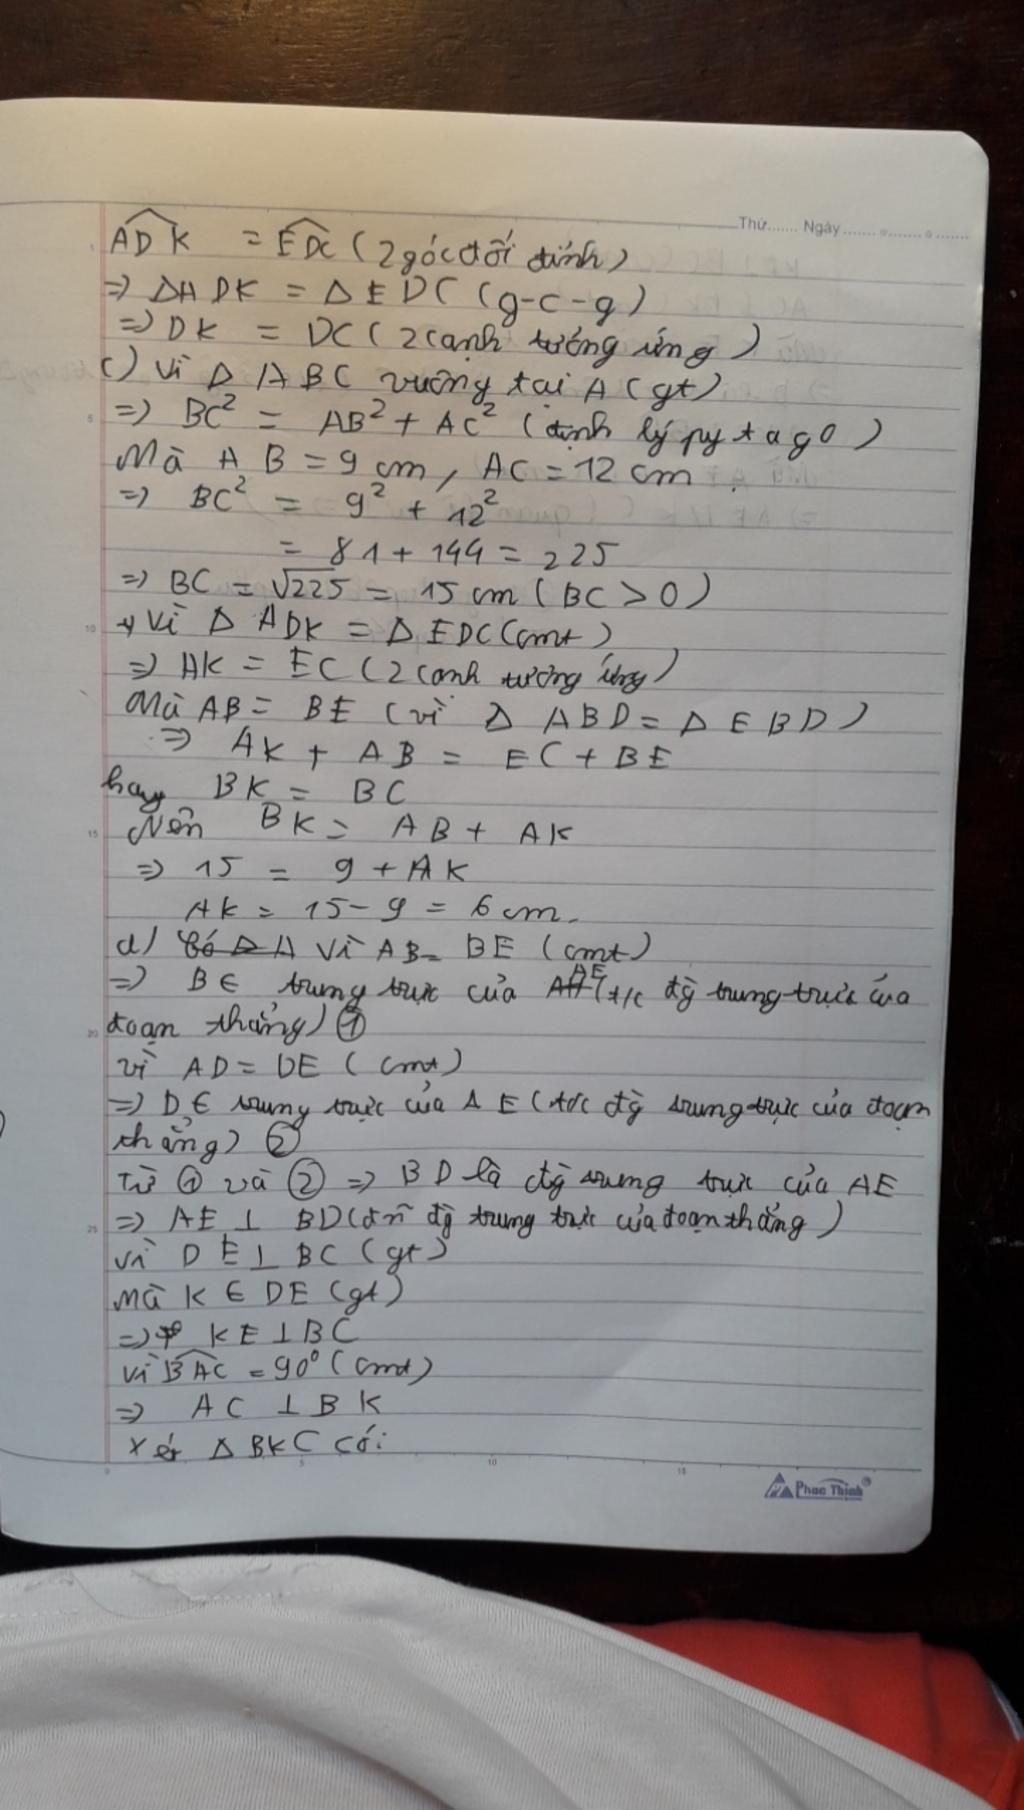 Thứ....... Ngày.......
ADK = EDC (2 góc đối đỉnh)
=> ΔADK = ΔEDC (g-c-g)
=> DK = DC (2 cạnh tương ứng)
c) Vì Δ ABC vuông tại A (gt)
=> BC² = AB² + AC² (định lý pytago)
Mà AB = 9 cm, AC = 12 cm
=> BC² = 9² + 12²
= 81 + 144 = 225
=> BC = √225 = 15 cm (BC > 0)
+) Vì Δ ADK = Δ EDC (cmt)
=> AK = EC (2 cạnh tương ứng)
Mà AB = BE (vì Δ ABD = Δ EBD)
=> AK + AB = EC + BE
hay BK = BC
Nên BK = AB + AK
=> 15 = 9 + AK
AK = 15 - 9 = 6 cm.
d) Vì AB = BE (cmt)
=> B ∈ trung trực của AE (t/c đg trung trực của
đoạn thẳng) ①
vì AD = DE (cmt)
=> D ∈ trung trực của AE (t/c đg trung trực của đoạn
thẳng) ②
Từ ① và ② => BD là đg trung trực của AE
=> AE ⊥ BD (đn đg trung trực của đoạn thẳng)
vì DE ⊥ BC (gt)
mà K ∈ DE (gt)
=> KE ⊥ BC
vì BAC = 90° (cmt)
=> AC ⊥ BK
Xét Δ BKC có:
5
10
15
20
25
0 5 10 15
Phuc Thinh